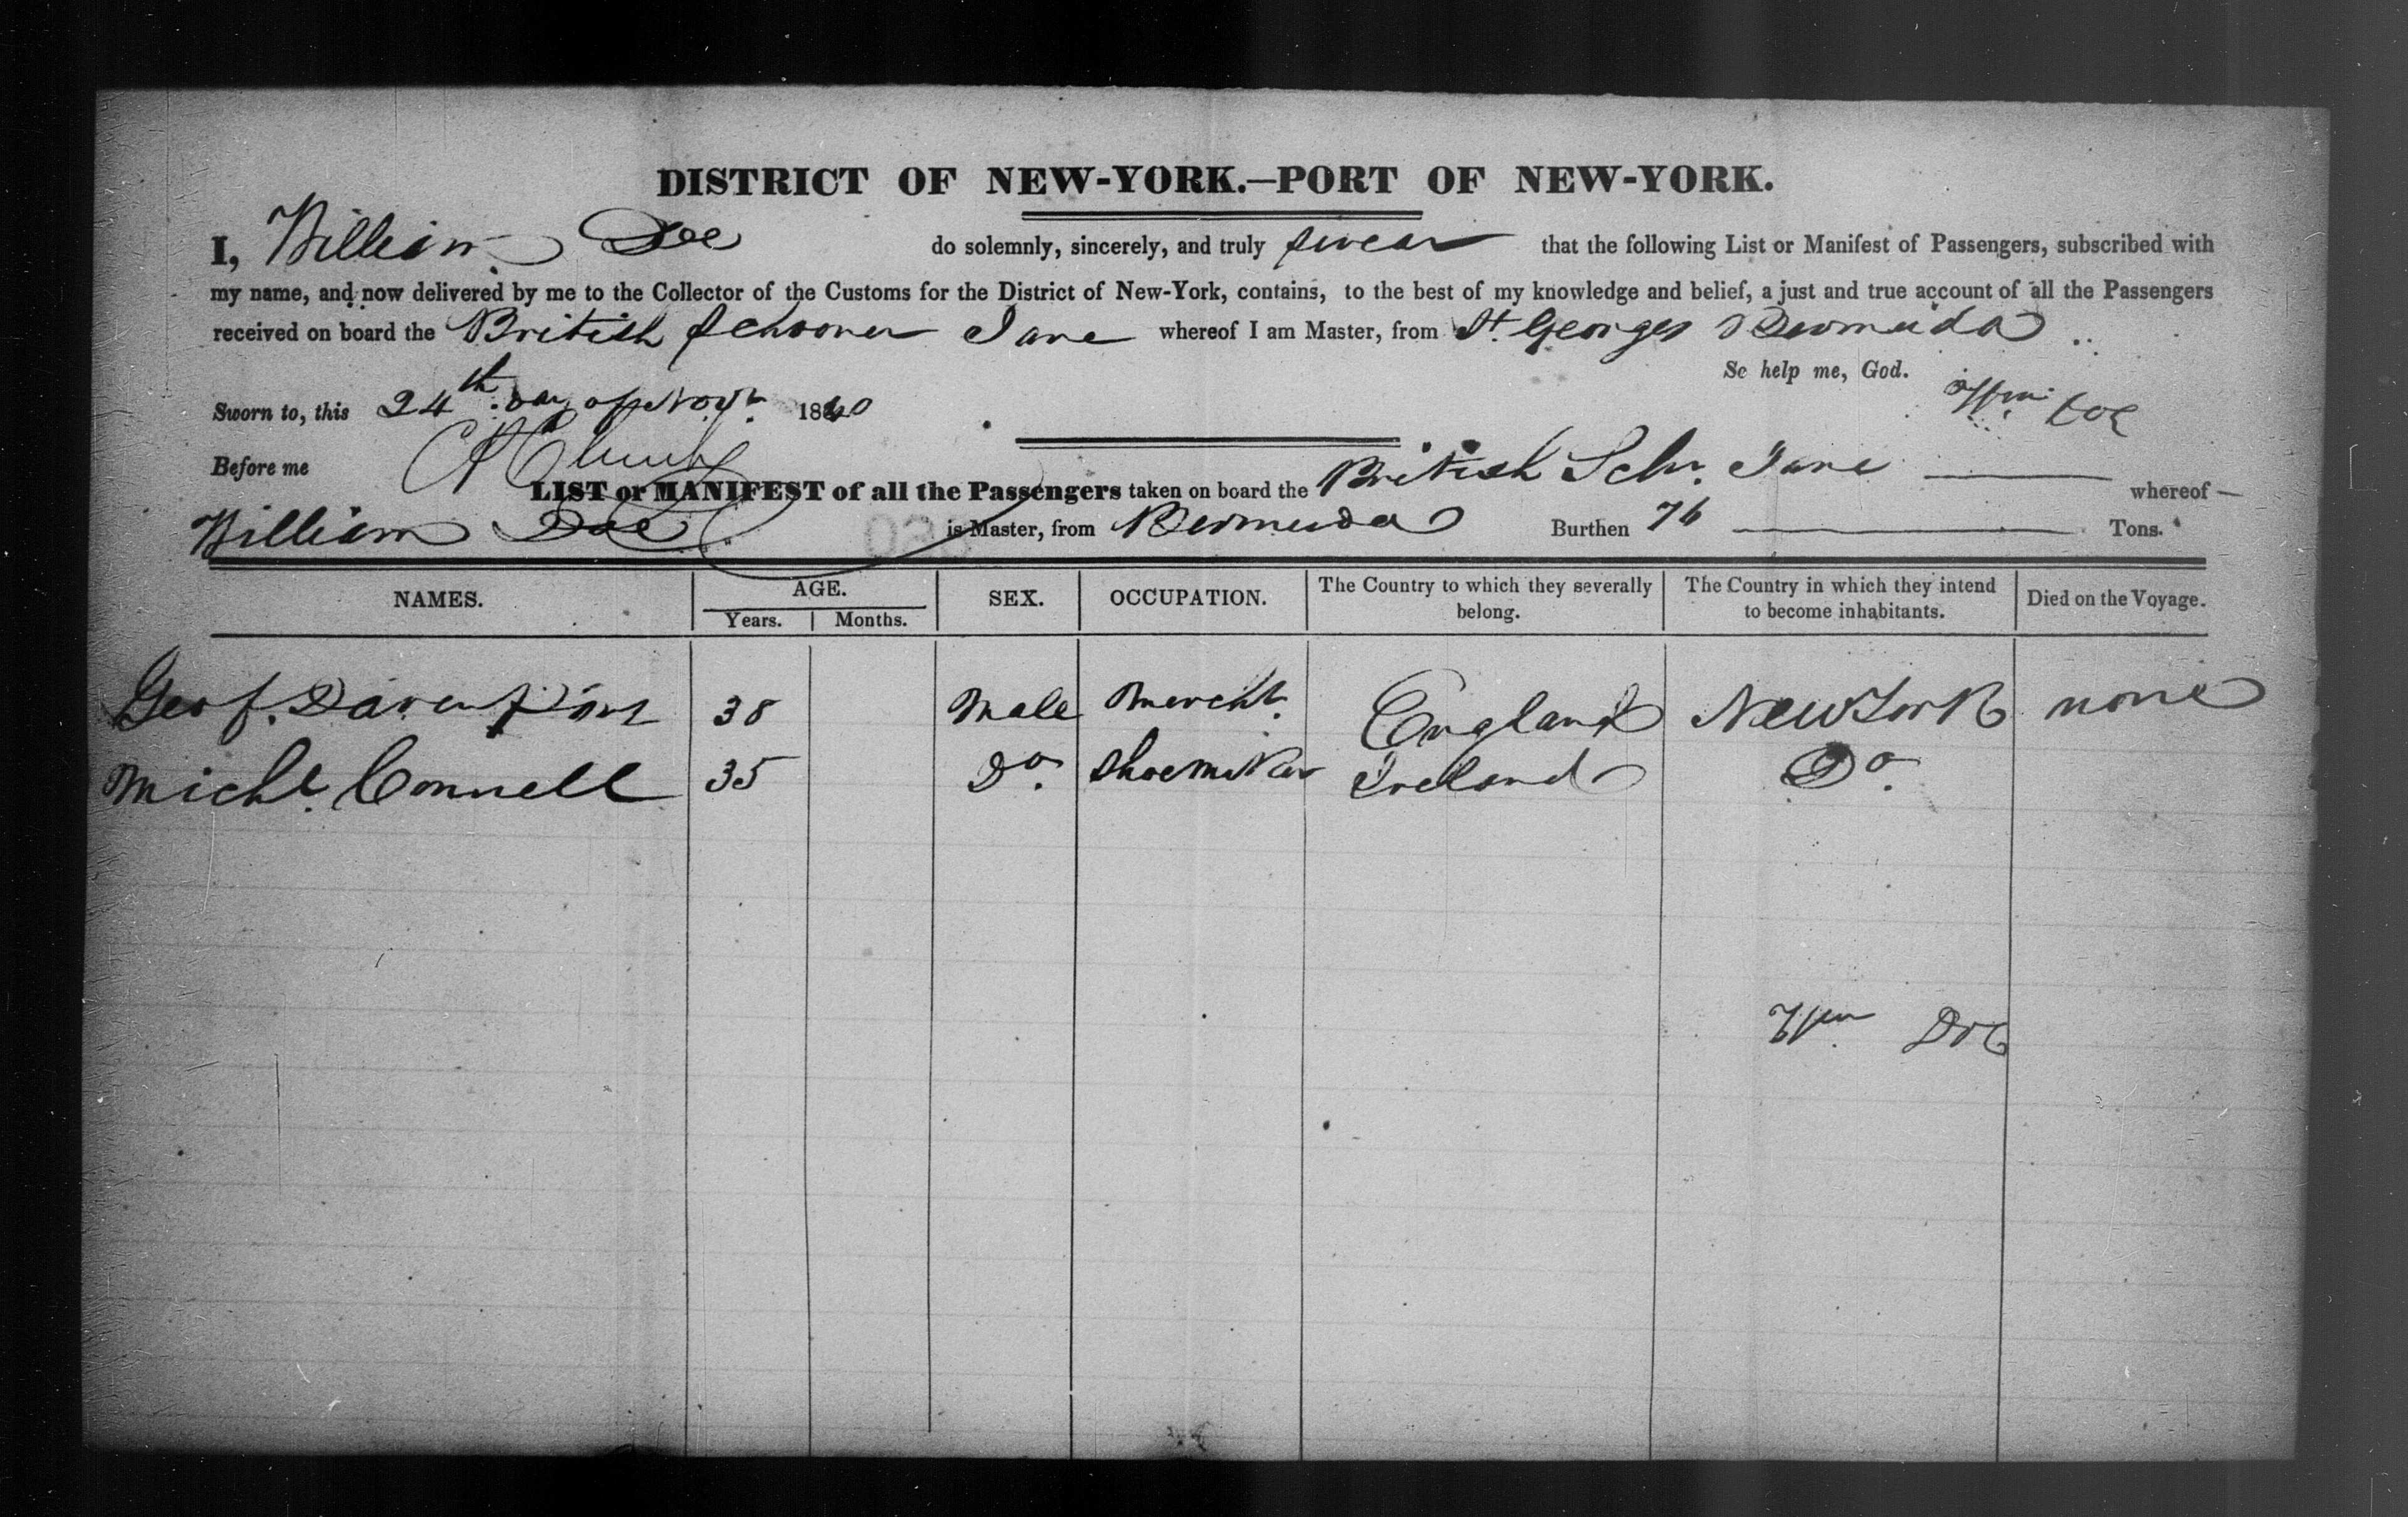 DISTRICT OF NEW-YORK.—PORT OF NEW-YORK.
I, William Doe do solemnly, sincerely, and truly swear that the following List or Manifest of Passengers, subscribed with
my name, and now delivered by me to the Collector of the Customs for the District of New-York, contains, to the best of my knowledge and belief, a just and true account of all the Passengers
received on board the British Schooner Jane whereof I am Master, from St. Georges Bermuda
So help me, God.
Sworn to, this 24th. Day of Novr. 1840
Wm Doe
Before me
LIST or MANIFEST of all the Passengers taken on board the British Schr. Jane whereof
William Doe is Master, from Bermuda Burthen 76 Tons.
NAMES. AGE. SEX. OCCUPATION. The Country to which they severally belong. The Country in which they intend to become inhabitants. Died on the Voyage.
Years. Months.
Geo f. Davenport 38 Male Mercht. England New York none
Michl. Connell 35 Do. Shoemaker Ireland Do.
Wm Doe